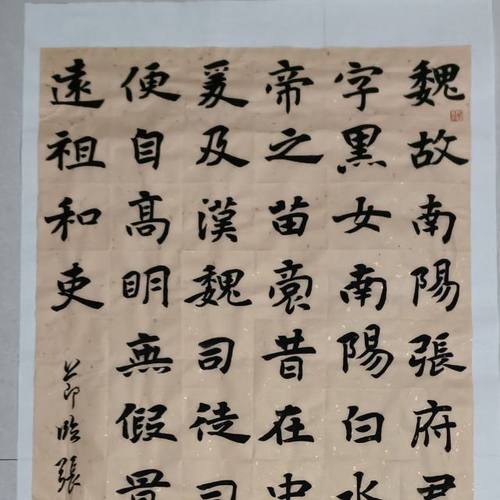 魏故南陽張府君
字黑女南陽白水
帝之苗裔昔在中
爰及漢魏司徒司
便自高明無假
遠祖和吏
節臨張